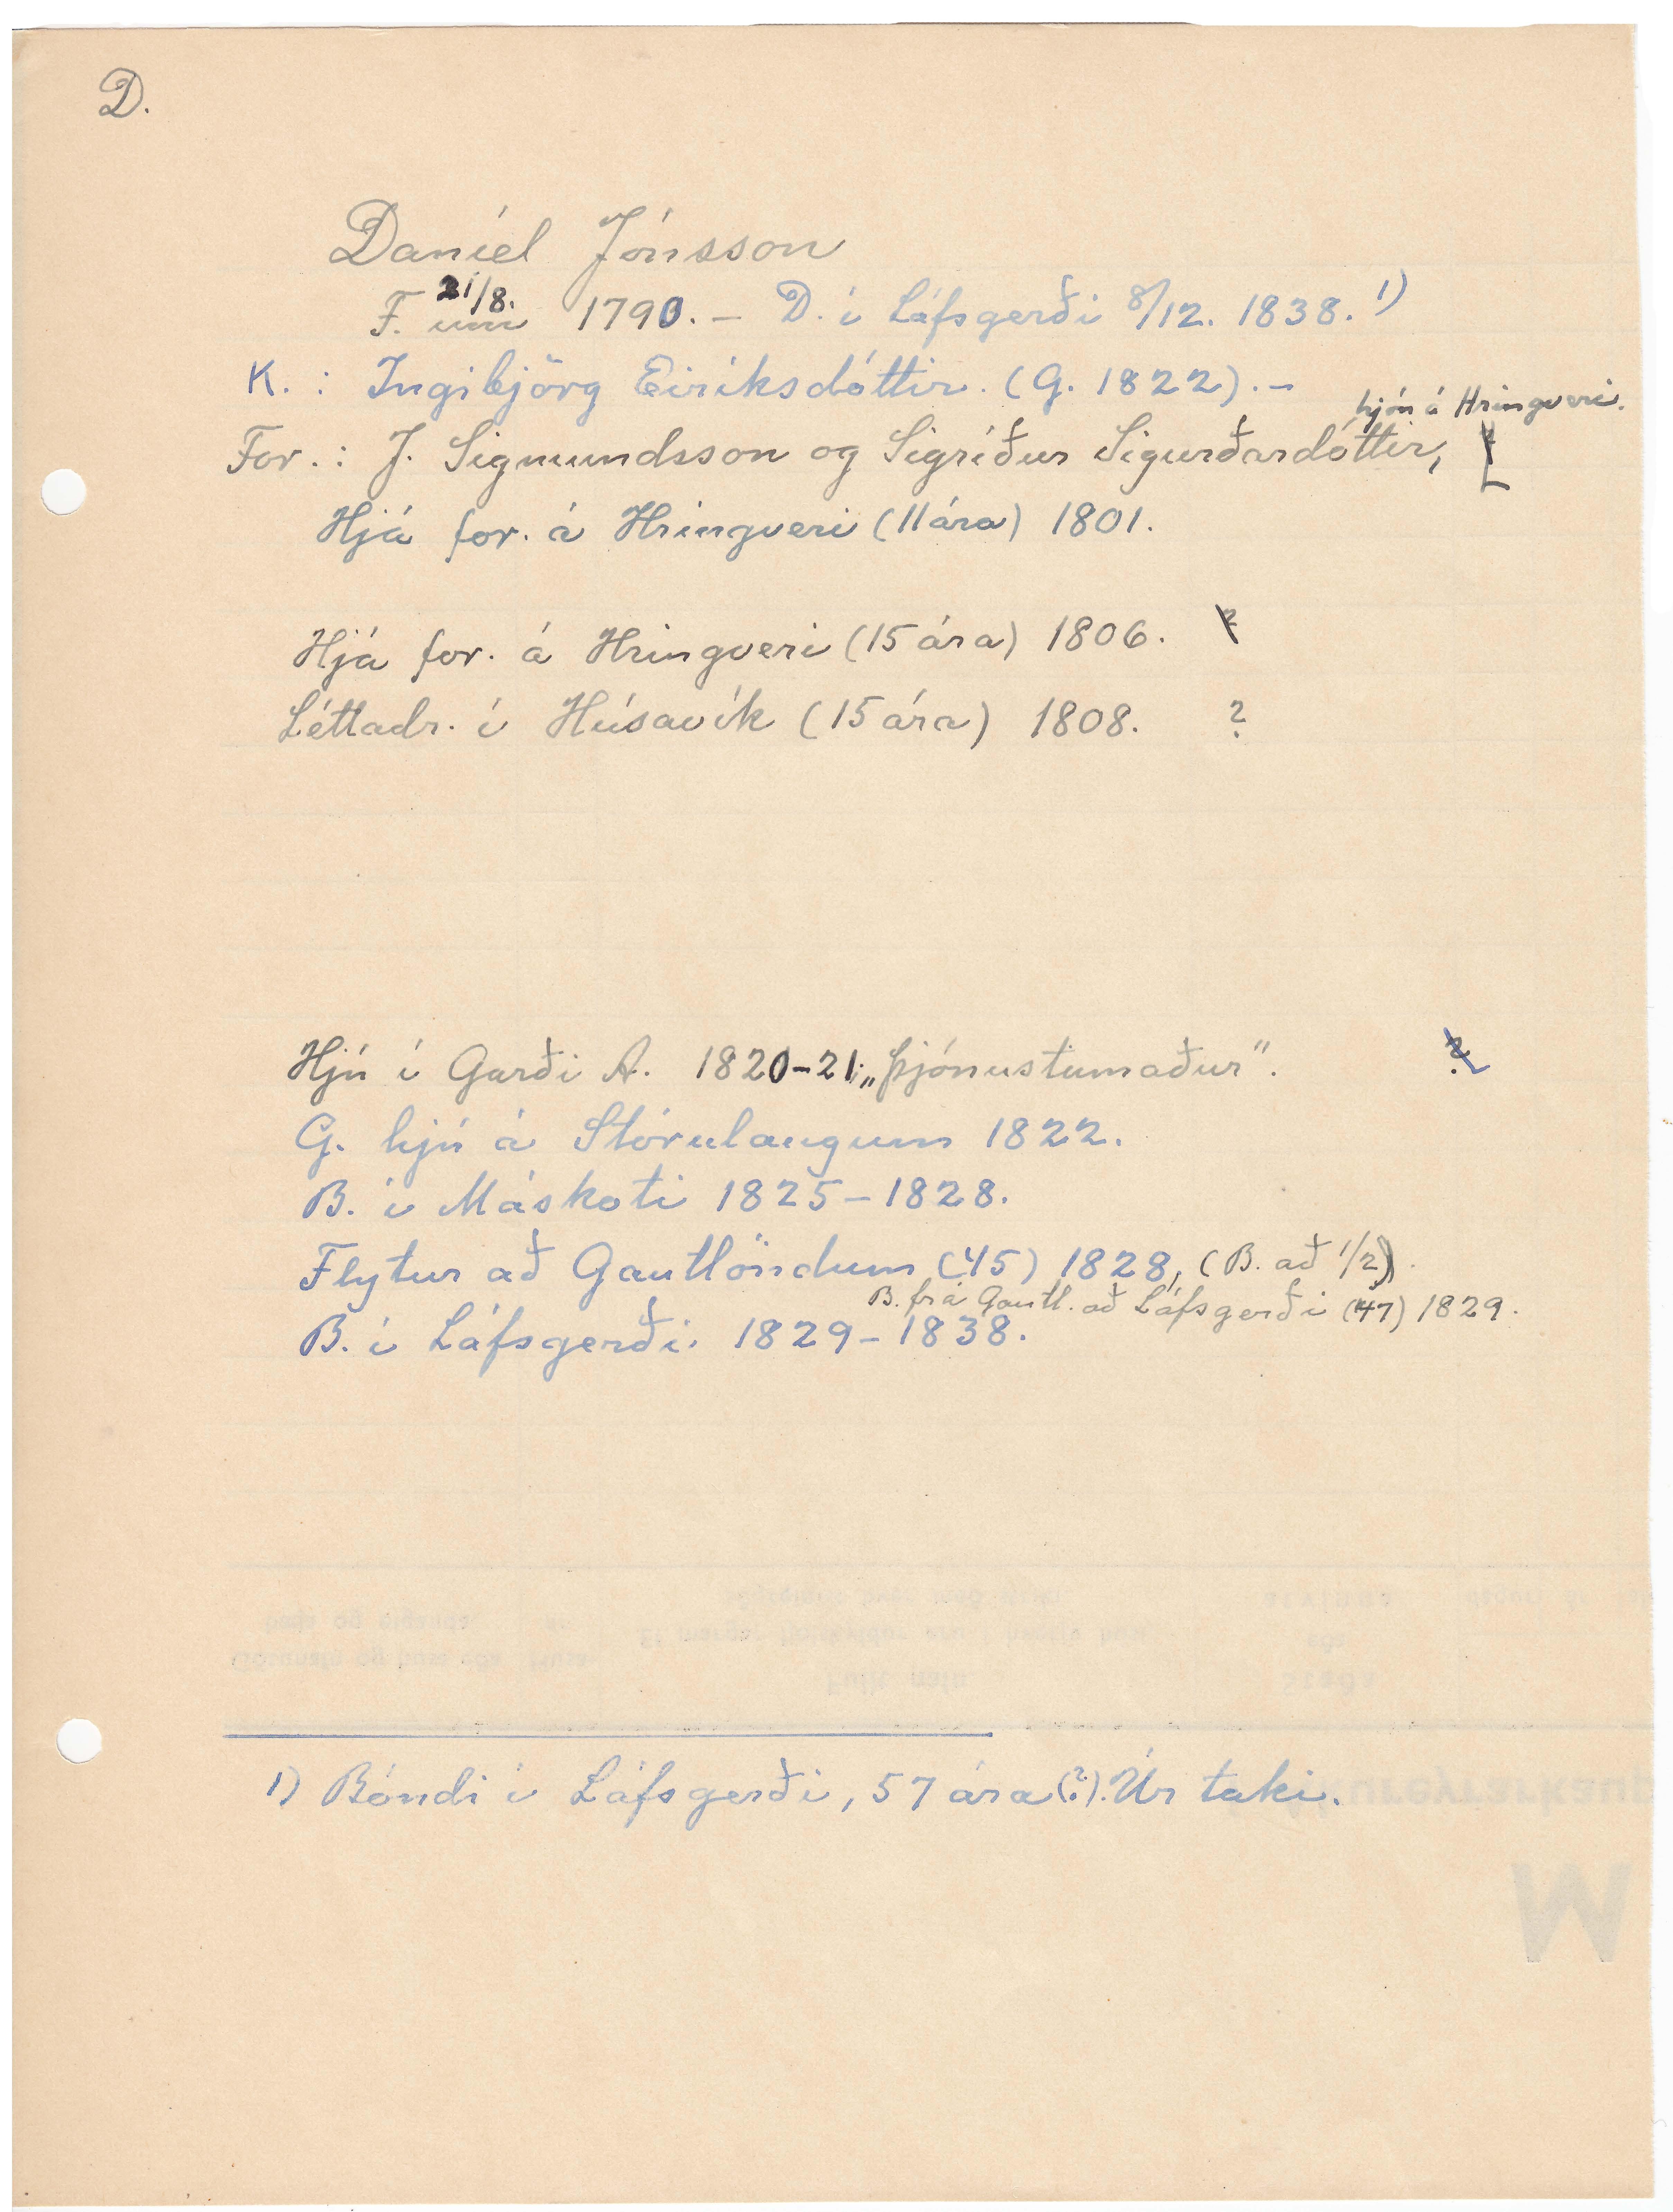 D.
Daníel Jónsson
F. um 21/8. 1790. – D. í Láfsgerði 8/12. 1838. 1)
K. : Ingibjörg Eiríksdóttir. (G. 1822). –
hjón á Hringveri.
For. : J. Sigmundsson og Sigríður Sigurðardóttir,
Hjá for. á Hringveri (11 ára) 1801.
Hjá for. á Hringveri (15 ára) 1806. ?
Léttadr. í Húsavík (15 ára) 1808. ?
Hjú í Garði A. 1820–21; „þjónustumaður". ?
G. hjú á Stórulaugum 1822.
B. í Máskoti 1825–1828.
Flytur að Gautlöndum (45) 1828, (B. að 1/2).
B. frá Gautl. að Láfsgerði (47) 1829.
B. í Láfsgerði. 1829–1838.
1) Bóndi í Láfsgerði, 57 ára (?). Úr taki.